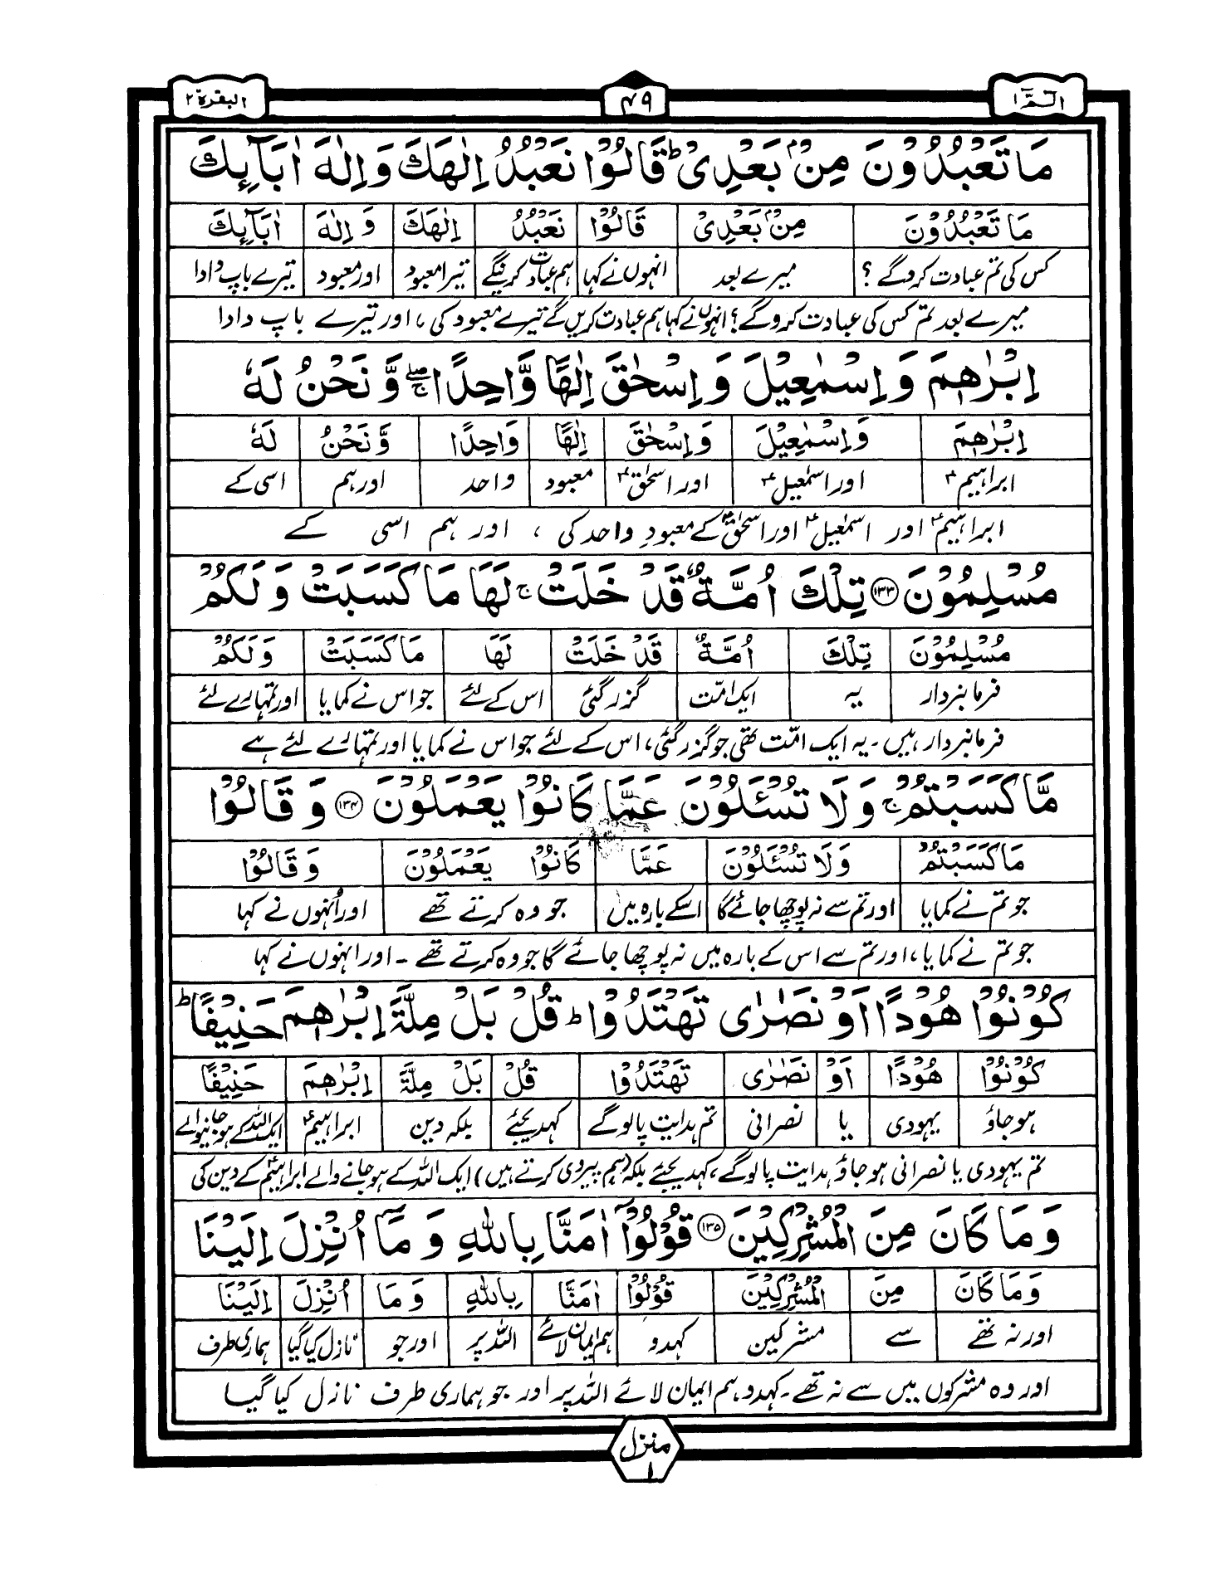 الٓـمّٓ ١
۴۹
البقرة ٢
مَا تَعْبُدُوْنَ مِنْۢ بَعْدِیْ ؕ قَالُوْا نَعْبُدُ اِلٰهَكَ وَ اِلٰهَ اٰبَآئِكَ
مَا تَعْبُدُوْنَ مِنْۢ بَعْدِیْ قَالُوْا نَعْبُدُ اِلٰهَكَ وَ اِلٰهَ اٰبَآئِكَ
کس کی تم عبادت کرو گے ؟ میرے بعد انہوں نے کہا ہم عبادت کرینگے تیرا معبود اور معبود تیرے باپ دادا
میرے بعد تم کس کی عبادت کرو گے؟ انہوں نے کہا ہم عبادت کریں گے تیرے معبود کی ، اور تیرے باپ دادا
اِبْرٰهٖمَ وَ اِسْمٰعِیْلَ وَ اِسْحٰقَ اِلٰهًا وَّاحِدًا ۖۚ وَّ نَحْنُ لَهٗ
اِبْرٰهٖمَ وَ اِسْمٰعِیْلَ وَ اِسْحٰقَ اِلٰهًا وَاحِدًا وَّ نَحْنُ لَهٗ
ابراہیمؑ اور اسمٰعیلؑ اور اسحٰقؑ معبود واحد اور ہم اسی کے
ابراہیمؑ اور اسمٰعیلؑ اور اسحٰقؑ کے معبودِ واحد کی ، اور ہم اسی کے
مُسْلِمُوْنَ ﴿۱۳۳﴾ تِلْكَ اُمَّةٌ قَدْ خَلَتْ ۚ لَهَا مَا كَسَبَتْ وَ لَكُمْ
مُسْلِمُوْنَ تِلْكَ اُمَّةٌ قَدْ خَلَتْ لَهَا مَا كَسَبَتْ وَ لَكُمْ
فرمانبردار یہ ایک امّت گزر گئی اس کے لئے جو اس نے کمایا اور تمہارے لئے
فرمانبردار ہیں ۔ یہ ایک امّت تھی جو گزر گئی، اس کے لئے جو اس نے کمایا اور تمہارے لئے ہے
مَّا كَسَبْتُمْ ۚ وَ لَا تُسْئَلُوْنَ عَمَّا كَانُوْا یَعْمَلُوْنَ ﴿۱۳۴﴾ وَ قَالُوْا
مَا كَسَبْتُمْ وَ لَا تُسْئَلُوْنَ عَمَّا كَانُوْا یَعْمَلُوْنَ وَ قَالُوْا
جو تم نے کمایا اور تم سے نہ پوچھا جائے گا اسکے بارہ میں جو وہ کرتے تھے اور اُنہوں نے کہا
جو تم نے کمایا، اور تم سے اس کے بارہ میں نہ پوچھا جائے گا جو وہ کرتے تھے ۔ اور انہوں نے کہا
كُوْنُوْا هُوْدًا اَوْ نَصٰرٰی تَهْتَدُوْا ؕ قُلْ بَلْ مِلَّةَ اِبْرٰهٖمَ حَنِیْفًا ؕ
كُوْنُوْا هُوْدًا اَوْ نَصٰرٰی تَهْتَدُوْا قُلْ بَلْ مِلَّةَ اِبْرٰهٖمَ حَنِیْفًا
ہو جاؤ یہودی یا نصرانی تم ہدایت پالو گے کہدیجئے بلکہ دین ابراہیمؑ ایک اللہ کے ہو جانیوالے
تم یہودی یا نصرانی ہو جاؤ ہدایت پالو گے، کہدیجئے بلکہ (ہم پیروی کرتے ہیں) ایک اللہ کے ہو جانے والے ابراہیمؑ کے دین کی
وَ مَا كَانَ مِنَ الْمُشْرِكِیْنَ ﴿۱۳۵﴾ قُوْلُوْۤا اٰمَنَّا بِاللّٰهِ وَ مَاۤ اُنْزِلَ اِلَیْنَا
وَ مَا كَانَ مِنَ الْمُشْرِكِیْنَ قُوْلُوْۤا اٰمَنَّا بِاللّٰهِ وَ مَا اُنْزِلَ اِلَیْنَا
اور نہ تھے سے مشرکین کہدو ہم ایمان لائے اللہ پر اور جو نازل کیا گیا ہماری طرف
اور وہ مشرکوں میں سے نہ تھے ۔ کہدو ہم ایمان لائے اللہ پر اور جو ہماری طرف نازل کیا گیا
منزل ۱